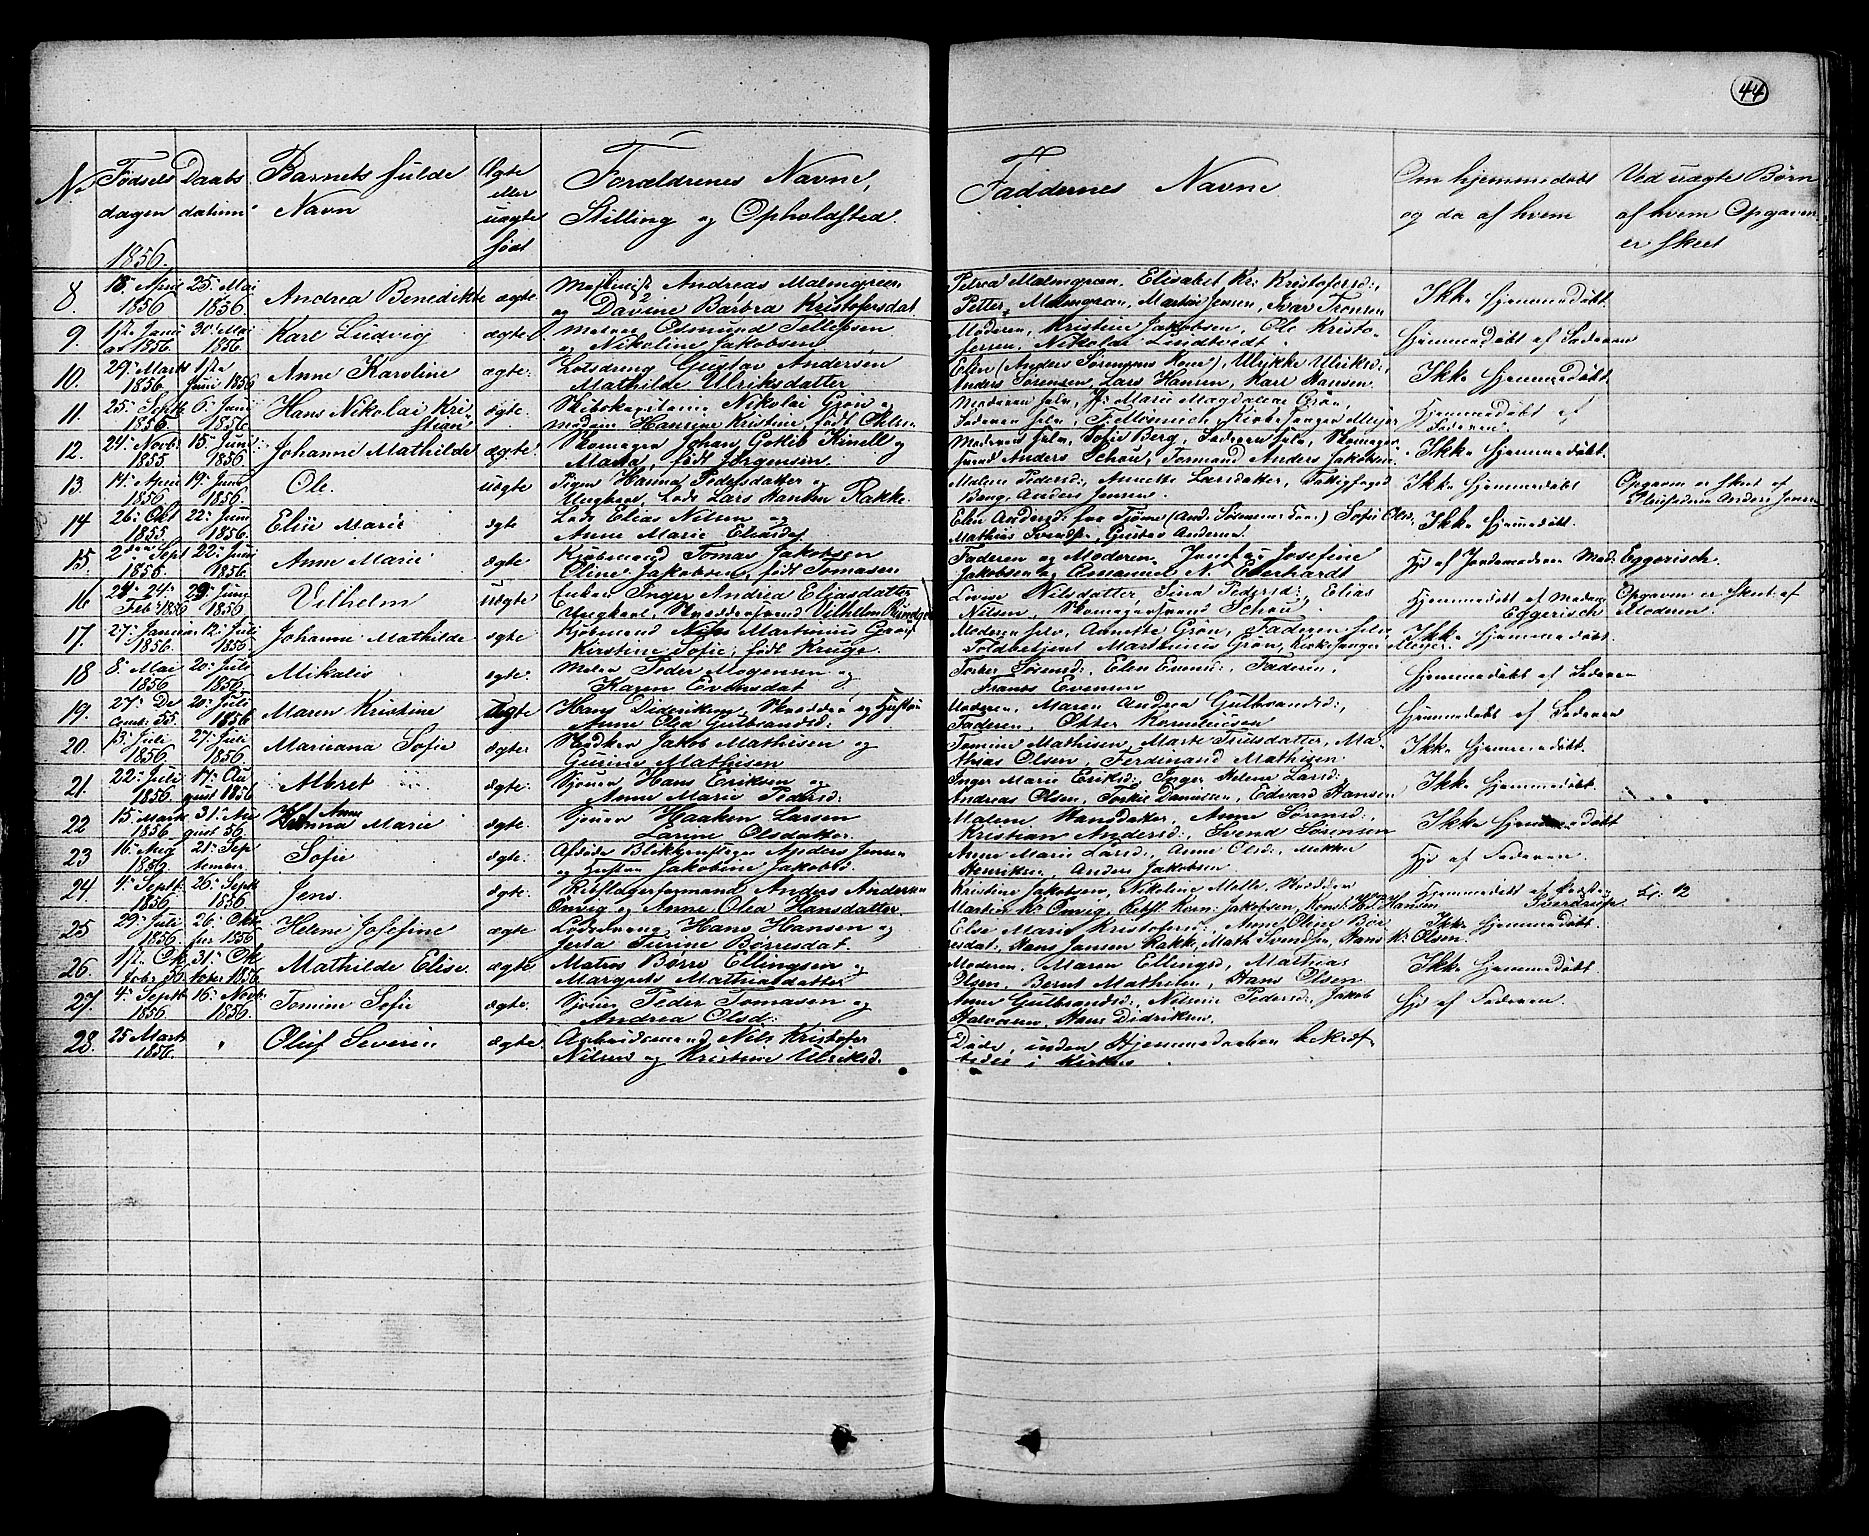 44
No Fødsels Daabs Barnets fulde Ægte Forældrenes Navne, Faddernes Navne Om hjemmedøbt Ved uægte Børn
dagen datum Navn eller Stilling og Opholdsted. og da af hvem af hvem Opgaven
1856. uægte født er skeet
8. 18. April 25. Mai Andrea Benedikte ægte. Andreas Malmgreen Petrea Malmgran, Elisabet Kr: Kristofersd:, Ikke Hjemmedøbt
1856 1856. og Davine Barbra Kristofersdat Petter Malmgran, Martin Jensen, Ivar Tronsen
9. 1ste Janu 30. Mai Karl Ludvig ægte. Matros Edmund Tellefsen Moderen, Kristine Jakobsen, Ole Kristo- Hjemmedøbt af Faderen
ar 1856. 1856. og Nikoline Jakobsen fersen, Nikolai Lindtvedt.
10. 29. Marts 1ste Anne Karoline ægte: Lotsdreng Gustav Andersen Elen (Anders Sørensens Kone), Ulrikke Ulriksd:, Ikke Hjemmedøbt
1856 Juni 1856 Mathilde Ulriksdatter Anders Sørensen, Lars Hansen, Karl Hansen.
11. 25. Septb 6. Juni Hans Nikolai Kri- ægte: Skibskapitain Nikolai Grøn og Moderen selv, Marie Magdalene Grøn, Hjemmedøbt af
1856 1856. stian Madam Hansine Kristine, født Ohlsen Faderen selv, Kirkesanger Meyer Faderen.
12. 24. Novb. 15. Juni Johanne Mathilde ægte: Skomager Johan Gotlib Kinell og Moderen selv, Sofie Berg, Faderen selv, Skomager- Ikke Hjemmedøbt.
1855. 1856. Maria, født Jørgensen. svend Anders Schou, Formand Anders Jakobsen
13. 14. April 19. Juni Ole. uægte Pigen Hanna Pedersdatter og Malene Pedersd:, Annette Larsdatter, Ikke Hjemmedøbt Opgaven er skeet af
1856 1856. Ungkarl, Lods Lars Hansen Rakke. Berg, Anders Jensen. Pleiefaderen Anders Jensen
14 26. Okt 22. Juni Elise Marie ægte Lods Elias Nilsen og Elen Andersd: fra Tjømø (And. Sørensens Kone.) Sofie Olsd. Ikke Hjemmedøbt.
1855. 1856. Anne Marie Eliasdat Mathias Svendsen, Gustav Andersen.
15. 2den Sept 22. Juni Anne Marie ægte Kjøbmand Tomas Jakobsen Faderen og Moderen, Jomfru Josefine Hjd af Jordemoderen Mad: Eggerisch.
1856. 1856. Eline Jakobsen, født Tomasen Jakobsen og Emanuel N. Eberhardt
16 24. Vilhelm uægte Enken Inger Andrea Eliasdatter Lovise Nilsdatter, Sina Pedersd:, Elias Hjemmedøbt af Madam Opgaven er skeet af
Feb: 1856 1856 Ungkarl, Skræddersvend Vilhelm Nilsen, Skomagersvend Schou Eggerisch Moderen.
17. 27. Januar 12. Juli Johanne Mathilde ægte: Kjøbmand Niels Martinius Grøn Moderen selv, Annette Grøn, Faderen selv, Ikke Hjemmedøbt.
1856. 1856. Kirstine Sofie, født Kruge. Toldbetjent Marthinius Grøn, Kirkesanger Meyer.
18 8. Mai 20. Juli Mikalis ægte: Matros Peder Mogensen og Elen Evensd:, Faderen, Hjemmedøbt af Faderen
1856 1856. Karen Evensdat Frants Evensen
19. 27. De 20. Juli Maren Kristine Ægte Hans Dideriksen, Skrædder og Hustru Moderen, Maren Andrea Gulbrandsd:, Hjemmedøbt af Faderen
cemb: 55. 1856 Anne Olea Gulbrandsd: Faderen, Otter Korneliusen
20. 13. Juli 27. Juli Mariana Sofie ægte: Jakob Mathisen og Tomine Mathisen, Marte Trulsdatter, Ma- Ikke Hjemmedøbt.
1856. 1856. Gurine Mathisen thias Olsen, Ferdinand Mathisen.
21. 22. Juli 17. Au Albret ægte: Sjøm: Hans Eriksen og Inger Marie Eriksd:, Inger Helene Larsd:, Ikke Hjemmedøbt.
1856 gust 1856 Anne Marie Pedersd: Andreas Olsen, Torkil Danielsen, Edvard Hansen
22 15. Marts 31. Au Anne Marie ægte: Sjøm: Haaken Larsen Malene Hansdatter, Anne Sørensd: Ikke Hjemmedøbt
1856 gust 56. Larine Olsdatter. Kristian Andersd:, Svend Sørensen
23 16. Aug 21. Sep Sofie ægte: Afdøde Blikkenslager Anders Jensen Anne Marie Larsd:, Anne Olsd:, Mikkel Hjd af Faderen.
tember. og Hustru Jakobine Jakobsd. Henriksen, Anders Jakobsen.
24. 4. Septb 26. Septb Jens. ægte: Rebslagerformand Anders Andersen Kristine Jakobsen, Nikoline Melle, Hjemmedøbt af
1856 1856 Omvig og Anne Olea Hansdatter. Martin Kr. Omvig, Jakobsen, H. Hansen
25 29. Juli 26. Okto Helene Josefine ægte Lodsdreng Hans Hansen og Else Marie Kristofersd:, Anne Oline Bør- Ikke Hjemmedøbt.
1856. ber 1856 Jerta Turine Børresdat. resdat:, Hans Jansen Rakke, Math. Svendsen, Hans K. Olsen.
26. 1ste Ok 31. Ok Mathilde Elise. ægte Matros Børre Ellingsen og Moderen, Maren Ellingsd, Mathias Ikke Hjemmedøbt
tober 56 tober 1856. Margrete Mathiasdatter Olsen, Bernt Mathesen, Hans Olsen
27. 4. Septb 16. Novb. Tomine Sofie ægte: Sjøm: Peder Tomasen og Anne Gulbrandsd:, Nilsine Pedersd:, Jakob Hjd af Faderen.
1856. 1856. Andrea Olsd: Halvorsen, Hans Didriksen.
28. 25 Marts " Oluf Severin ægte Arbeidsmand Nils Kristofer Døde, inden Hjemmedaaben bekræf-
1856. Nilsen og Kristine Ulriksd. tedes i Kirken.